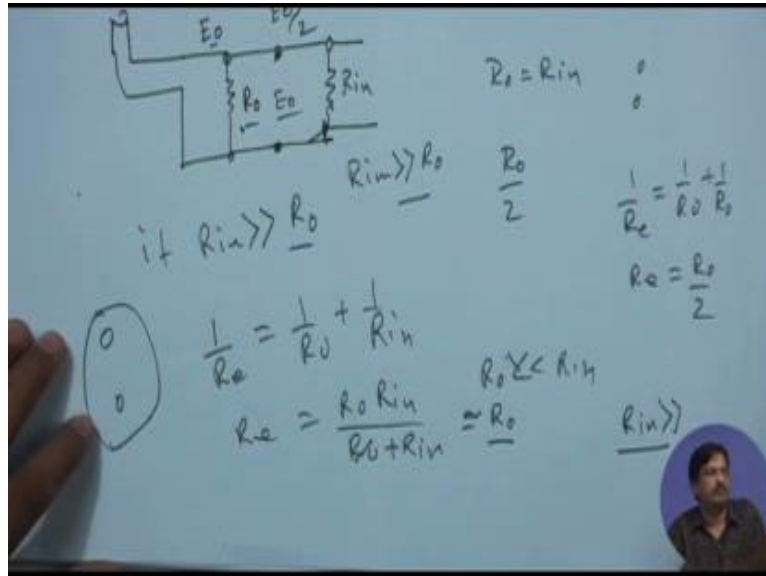 E0 E0/2
R0 E0 Rin
R0 = Rin
Rin >> R0
R0/2
1/Re = 1/R0 + 1/R0
Re = R0/2
if Rin >> R0
1/Re = 1/R0 + 1/Rin
R0 << Rin
Re = R0 Rin / R0 + Rin ≃ R0
Rin >>